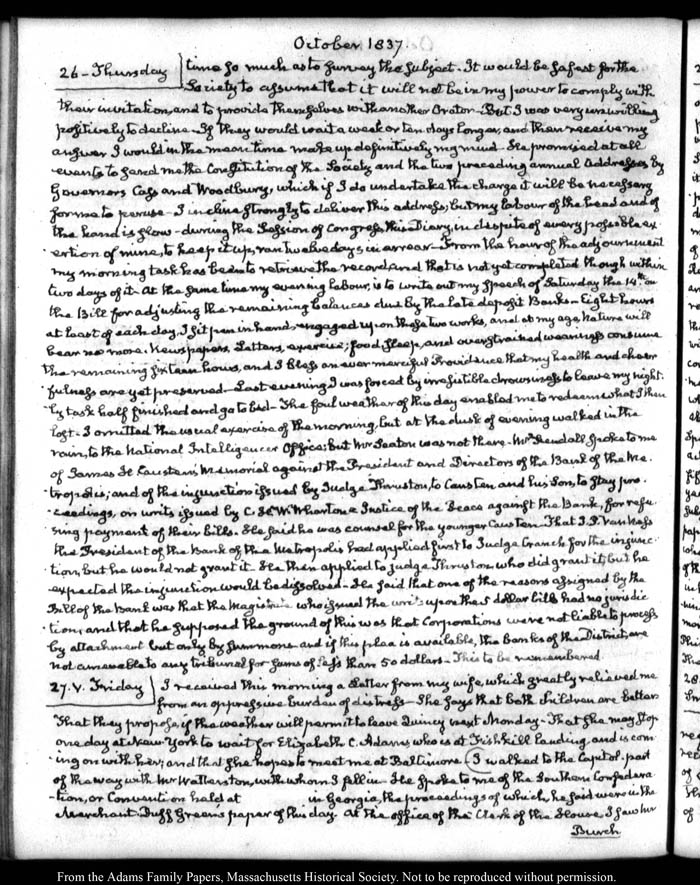 October 1837.
26 - Thursday time so much as to survey the subject. It would be safest for the
Society to assume that it will not be in my power to comply with
their invitation, and to provide themselves with another Orator. But I was very unwilling
positively to decline. If they would wait a week or ten days longer, and then receive my
answer I would in the mean time make up definitively my mind. He promised at all
events to send me the Constitution of the Society and the two preceding annual Addresses by
Governors Cass and Woodbury, which if I do undertake the charge it will be necessary
for me to peruse. I incline strongly to deliver this address; but my labour of the head and of
the hand is slow - during the Session of Congress this Diary, in despite of every possible ex-
ertion of mine, to keep it up, ran twelve days in arrear - From the hour of the adjournment
my morning task has been to retrieve the record, and that is not yet completed though within
two days of it. At the same time my evening labour, is to write out my Speech of Saturday the 14th on
the Bill for adjusting the remaining balances due by the late deposit Banks - Eight hours
at least of each day, I sit pen in hand, engaged upon these two works, and at my age Nature will
bear no more. Newspapers, Letters, exercise, food, sleep, and overstrained weariness consume
the remaining sixteen hours, and I bless an ever merciful Providence that my health and cheer-
fulness are yet preserved - Last evening I was forced by irresistible drowsiness to leave my night-
ly task half finished and go to bed - The foul weather of this day enabled me to redeem what I then
lost. I omitted the usual exercise of the morning, but at the dusk of evening walked in the
rain, to the National Intelligencer Office; but Mr Seaton was not there. Mr Kendall spoke to me
of James H. Causten's Memorial against the President and Directors of the Bank of the Me-
tropolis; and of the injunction issued by Judge Thruston, to Causten and his Son, to stay pro-
ceedings, on writs issued by C. H. W. Wharton a Justice of the Peace against the Bank, for refu-
sing payment of their bills. He said he was counsel for the younger Causten. That J. P. Van Ness
the President of the Bank of the Metropolis had applied first to Judge Cranch for the injunc-
tion, but he would not grant it. He then applied to Judge Thruston who did grant it, but he
expected the injunction would be dissolved - He said that one of the reasons assigned by the
Bill of the Bank was that the Magistrate who issued the writs upon these 5 dollar bills had no jurisdic-
tion, and that he supposed the ground of this was that Corporations were not liable to process
by attachment but only by summons and if this plea is available, the Banks of the District, are
not amenable to any tribunal for sums of less than 50 dollars - This to be remembered.
27. V. Friday I received this morning a Letter from my wife, which greatly relieved me
from an oppressive burden of distress - She says that both children are better
That they propose if the weather will permit to leave Quincy next Monday - That she may stop
one day at New-York to wait for Elizabeth C. Adams who is at Fishkill Landing, and is com-
ing on with her; and that she hopes to meet me at Baltimore. I walked to the Capitol - part
of the way with Mr Watterston, with whom I fell in. He spoke to me of the Southern Confedera-
tion, or Convention held at in Georgia, the proceedings of which he said were in the
Merchant. Duff Green's paper of this day. At the office of the Clerk of the House, I saw Mr
Burch
From the Adams Family Papers, Massachusetts Historical Society. Not to be reproduced without permission.